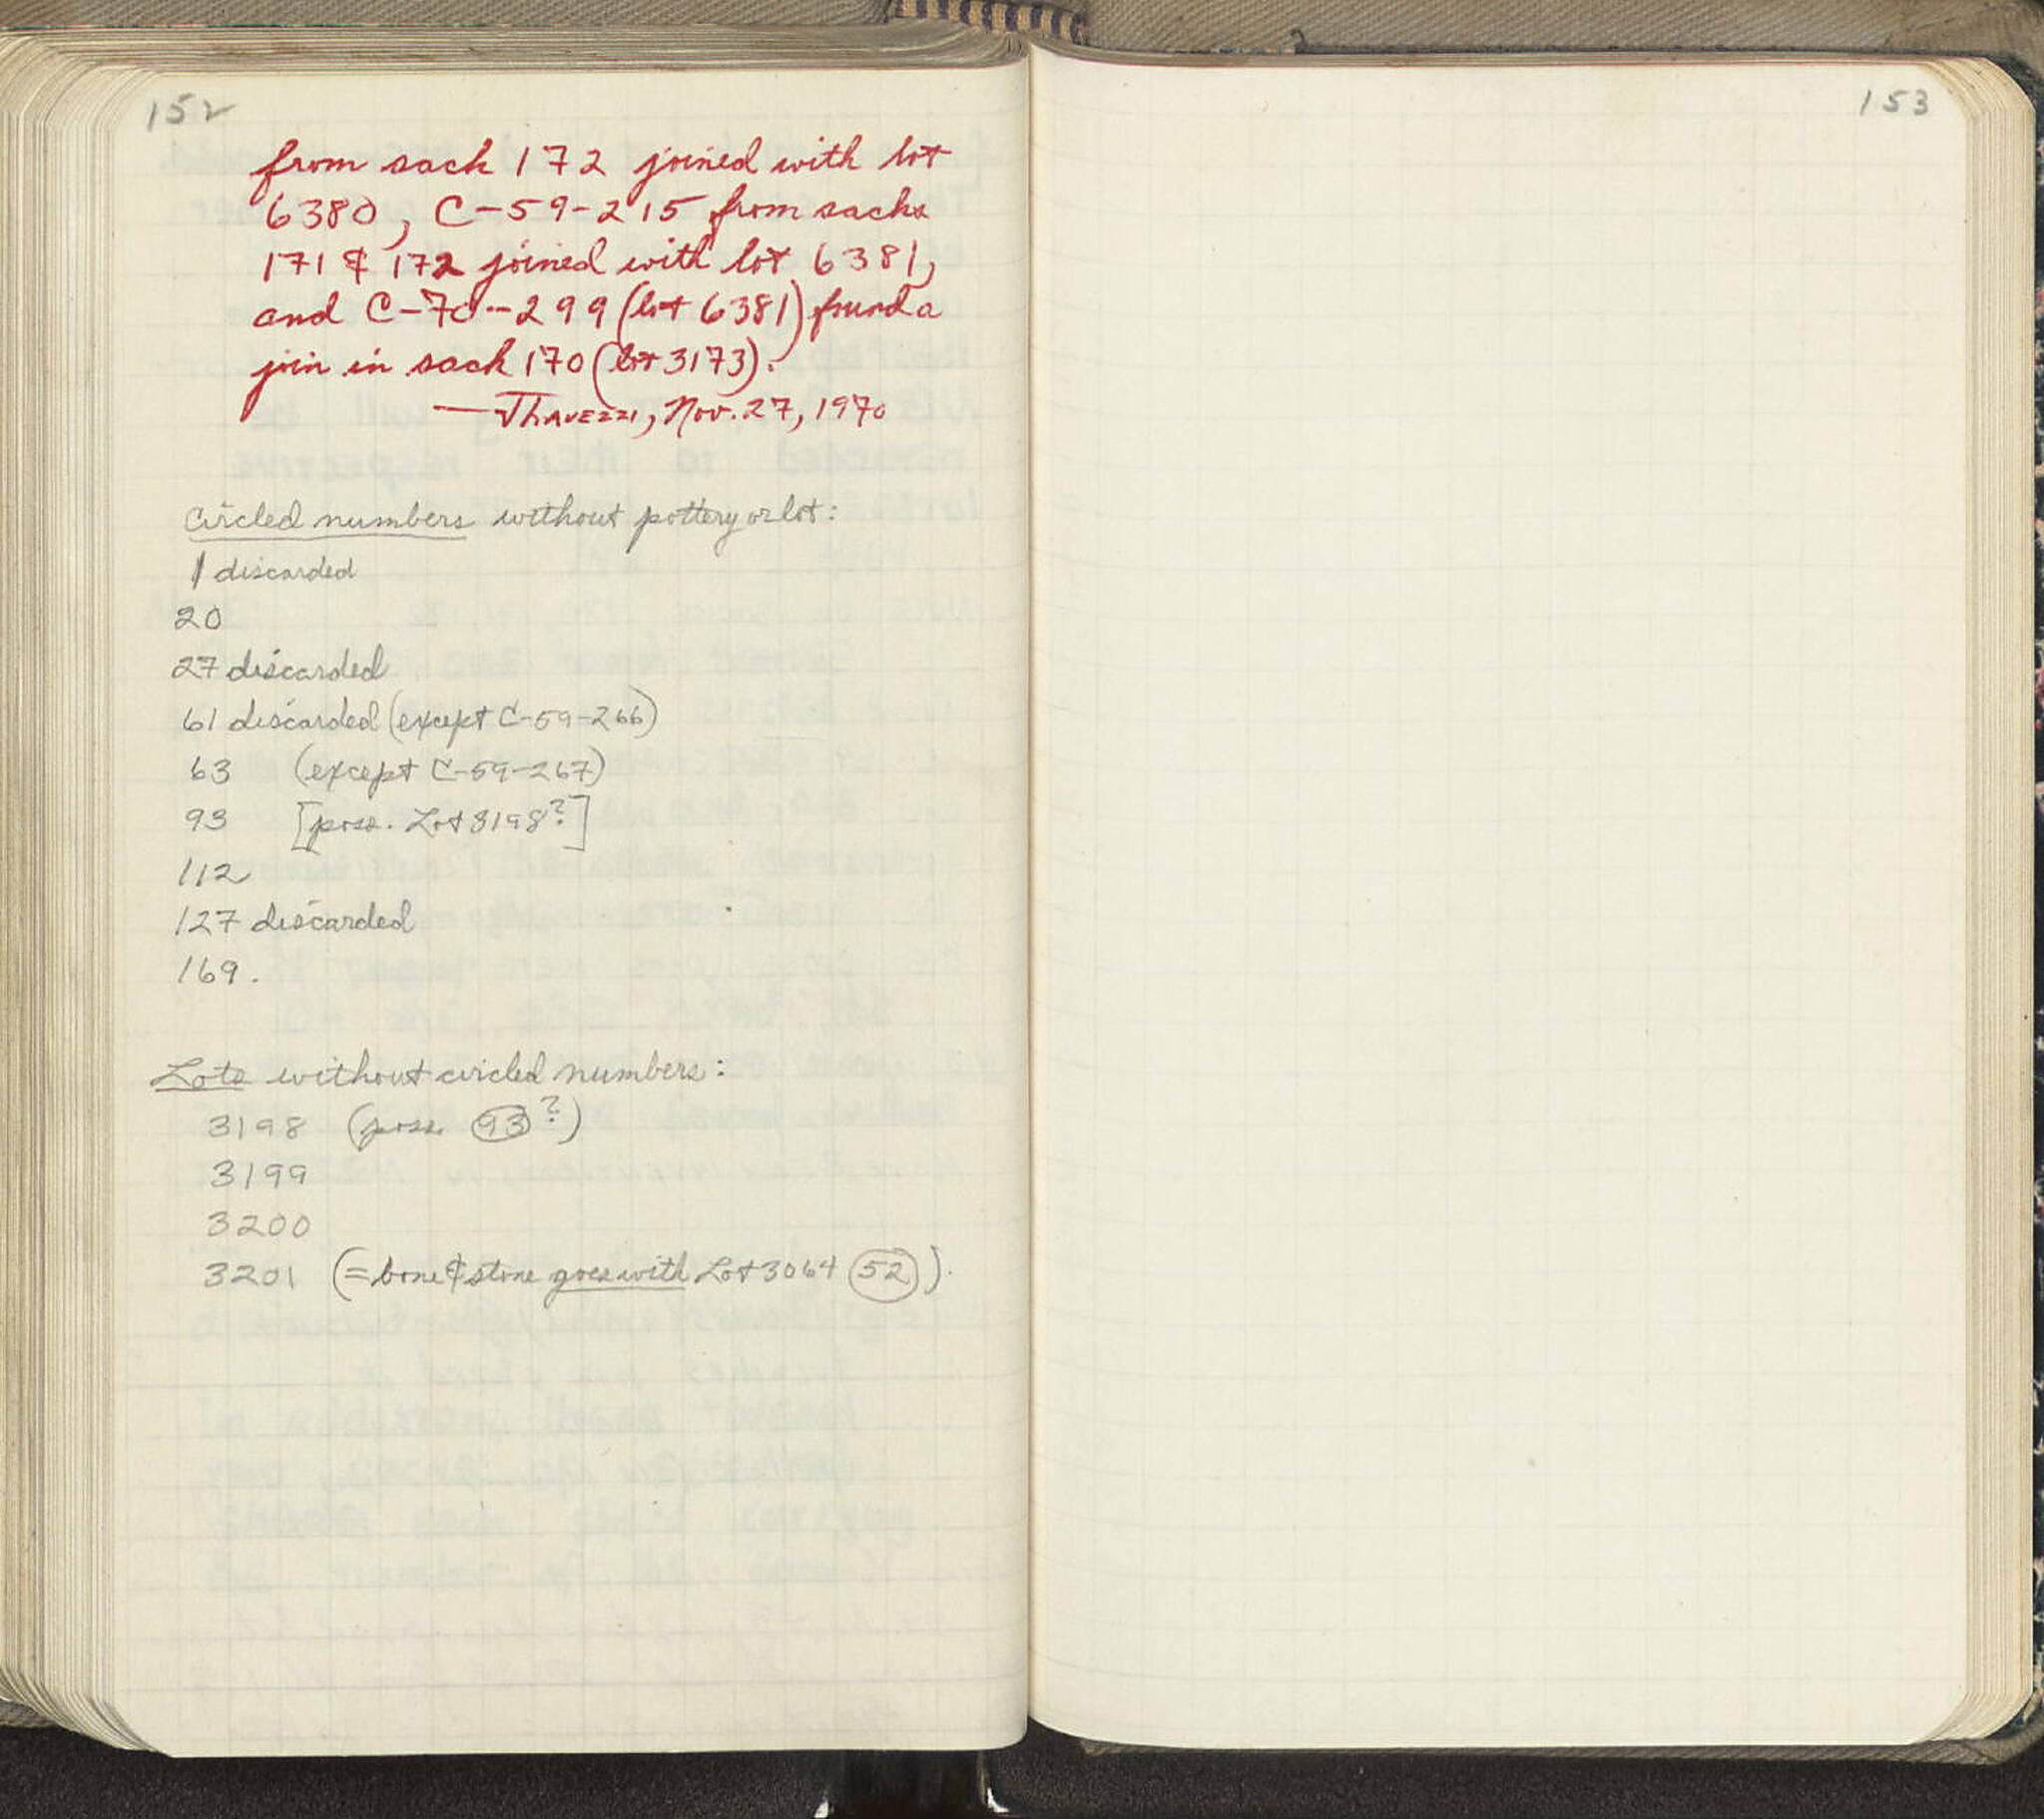 152
from sack 172 joined with lot
6380, C-59-215 from sacks
171 & 172 joined with lot 6381,
and C-70-299 (lot 6381) found a
join in sack 170 (lot 3173).
— JThavezzi, Nov. 27, 1970
Circled numbers without pottery or lot:
1 discarded
20
27 discarded
61 discarded (except C-59-266)
63 (except C-59-267)
93 [poss. Lot 3198?]
112
127 discarded
169.
Lots without circled numbers:
3198 (poss. 93?)
3199
3200
3201 (= bone & stone goes with Lot 3064 52).
153